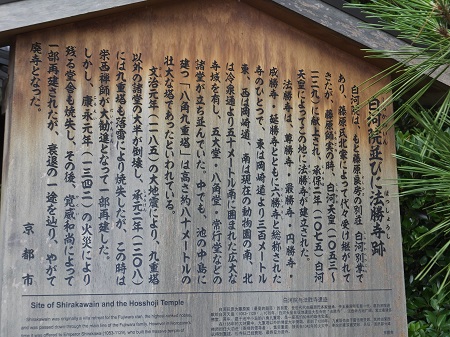 白河院並びに法勝寺跡
ほっしょうじ
白河院は、もと藤原良房の別荘、白河別業で
あり、藤原氏北家によって代々受け継がれて
きたが、藤原師実の時、白河天皇(一〇五三〜
一一二九)に献上され、承保二年(一〇七五)白河
天皇によってこの地に法勝寺が建立された。
法勝寺は、尊勝寺・最勝寺・円勝寺・
成勝寺・延勝寺とともに六勝寺と総称された
寺のひとつで、東は岡崎道より三百メートル
東、西は岡崎道、南は現在の動物園の南、北
は冷泉通より五十メートル南に囲まれた広大な
寺域を有し、五大堂・八角堂・常行堂などの
諸堂が立ち並んでいた。中でも、池の中島に
建つ「八角九重塔」は高さ約八十メートルの
壮大な塔であったといわれている。
文治元年(一一八五)の大地震により、九重塔
以外の諸堂の大半が倒壊し、承元二年(一二〇八)
には九重塔も落雷により焼失したが、この時は
栄西禅師が大勧進となって一部再建した。
しかし、康永元年(一三四二)の火災により
残る堂舎も焼失し、その後、覚威和尚によって
一部再建されたが、衰退の一途を辿り、やがて
廃寺となった。
京都市
Site of Shirakawain and the Hosshoji Temple